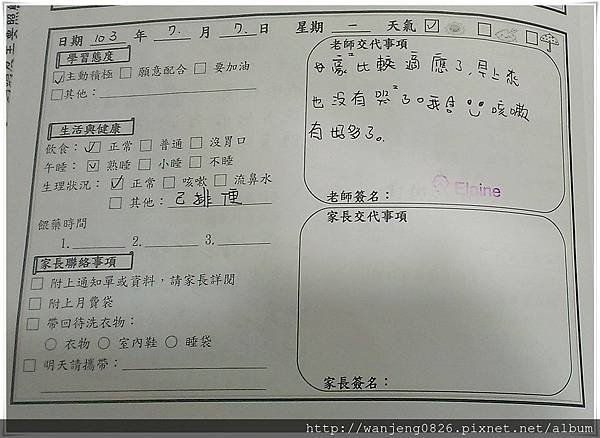 日期 103 年 7. 月 7. 日 星期 一 天氣
學習態度
主動積極 願意配合 要加油
其他：
生活與健康
飲食： 正常 普通 沒胃口
午睡： 熟睡 小睡 不睡
生理狀況： 正常 咳嗽 流鼻水
其他：已排便
餵藥時間
1. 2. 3.
家長聯絡事項
附上通知單或資料，請家長詳閱
附上月費袋
帶回待洗衣物：
衣物 室內鞋 睡袋
明天請攜帶：
老師交代事項
比較適應了,早上來
也沒有哭了。 咳嗽
有好多了。
老師簽名： Elaine
家長交代事項
家長簽名：
http://wanjeng0826.pixnet.net/album